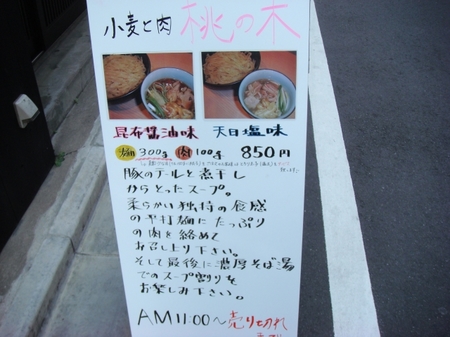 小麦と肉 桃の木
昆布醤油味 天日塩味
麺 300g 肉 100g 850円
豚のテールと煮干し
からとったスープ。
柔らかい独特の食感
の平打麺にたっぷり
の肉を絡めて
お召し上り下さい。
そして最後に濃厚そば湯
でのスープ割りを
お楽しみ下さい。
AM11:00〜売り切れ